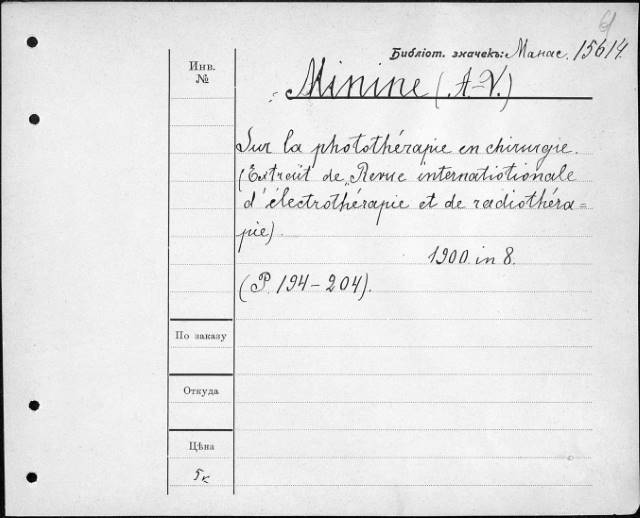 Библіот. значекъ: Манас. 15614.
Инв. №
Minine (A.-V.)
Sur la photothérapie en chirurgie.
(Extrait de „Revue internatiotionale
d'électrothérapie et de radiothéra=
pie).
1900. in 8.
(P. 194-204).
По заказу
Откуда
Цѣна
5к